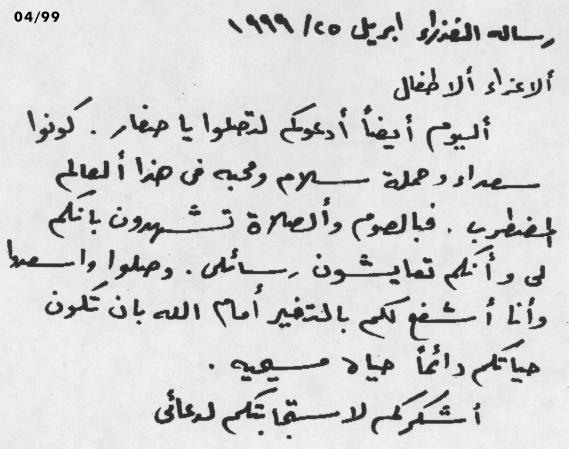 04/99
رساله العذراء ابريل ٢٥/ ١٩٩٩
ألاعزاء ألاطفال
أليوم أيضاً أدعوكم لتصلوا يا صغار . كونوا
سعداء وحملة سلام ومحبه فى هذا ألعالم
المضطرب . فبالصوم وألصلاة تشهدون بانكم
لى وأنكم تعايشون رسائلى . وصلوا واسعوا
وأنا أشفع لكم بالتغير أمام الله بان تكون
حياتكم دائماً حياه مسيحيه .
أشكركم لاستجابتكم لدعائى